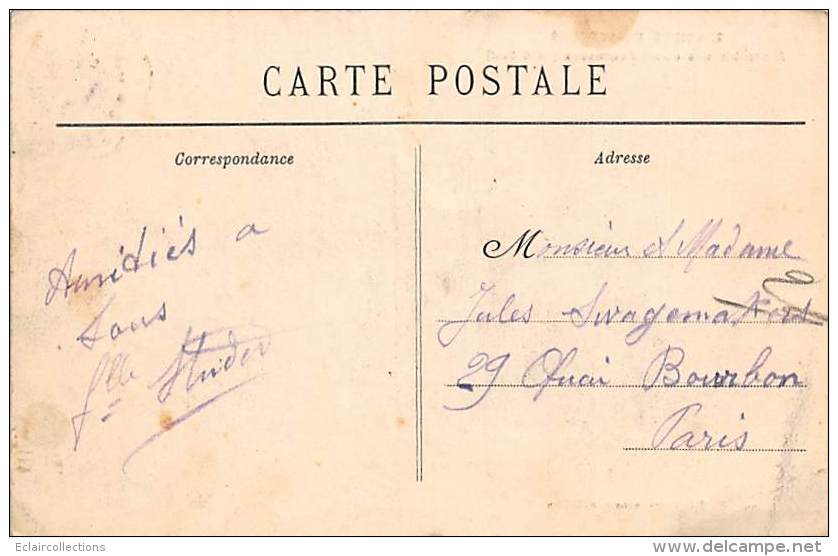 CARTE POSTALE
Correspondance
Adresse
Amitiés a
tous
flle Studer
Monsieur et Madame
Jules Swagemakers
29 Quai Bourbon
Paris
Eclaircollections
www.delcampe.net